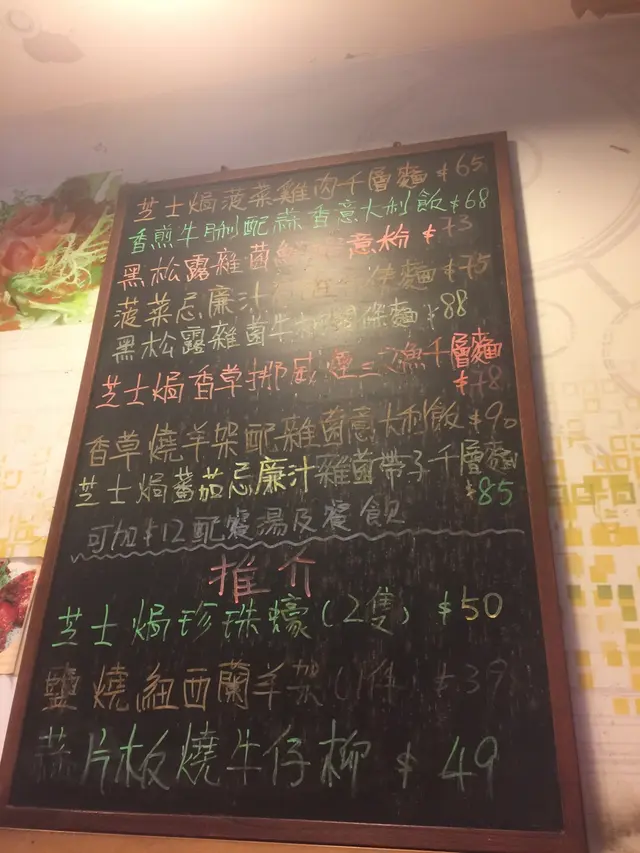 芝士焗菠菜雞肉千層麵 $65
香煎牛脷配蒜香意大利飯 $68
黑松露雜菌 意粉 $73
菠菜忌廉汁 麵 $75
黑松露雜菌牛 麵 $88
芝士焗香草挪威煙三文漁千層麵
$78
香草燒羊架配雜菌意大利飯 $90
芝士焗蕃茄忌廉汁雜菌帶子千層麵
$85
可加$12配餐湯及餐飲
推介
芝士焗珍珠蠔(2隻) $50
鹽燒紐西蘭羊架(1件) $39
蒜片板燒牛仔柳 $49